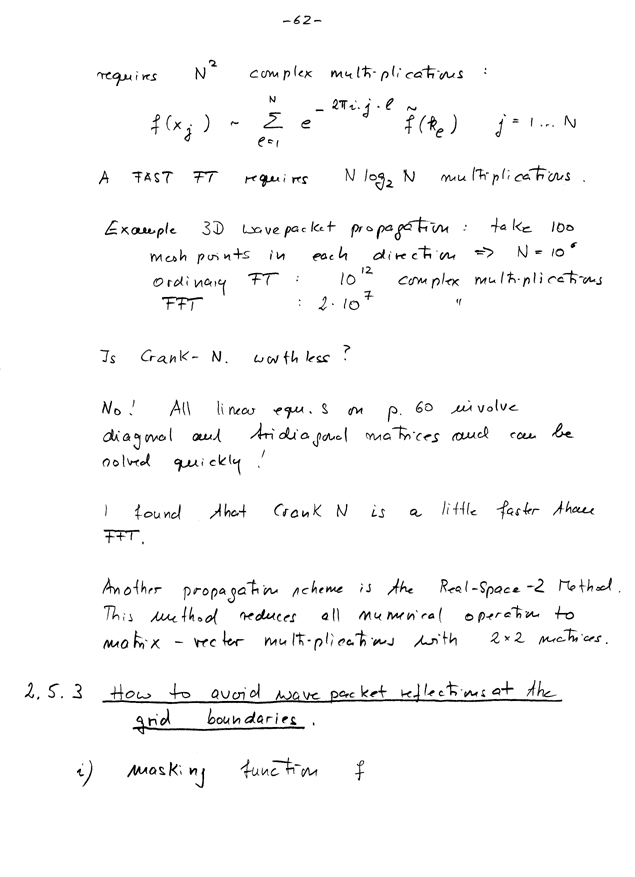 -62-
requires N² complex multiplications :
f(x_j) ~ Σ_{l=1}^{N} e^{-2πi·j·l} f̃(k_l) j = 1 ... N
A FAST FT requires N log₂ N multiplications.
Example 3D wavepacket propagation : take 100
mesh points in each direction => N = 10⁶
ordinary FT : 10¹² complex multiplications
FFT : 2·10⁷ "
Is Crank-N. worthless ?
No! All linear equ.s on p. 60 involve
diagonal and tridiagonal matrices and can be
solved quickly!
I found that Crank N is a little faster than
FFT.
Another propagation scheme is the Real-Space-2 Method.
This method reduces all numerical operation to
matrix - vector multiplications with 2×2 matrices.
2.5.3 How to avoid wave packet reflections at the
grid boundaries.
i) masking function f